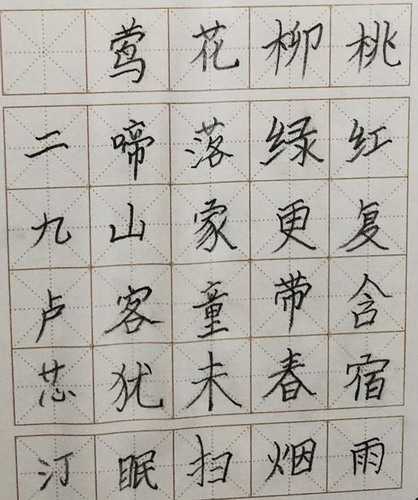 桃红复含宿雨
柳绿更带春烟
花落家童未扫
莺啼山客犹眠
二九卢芯汀